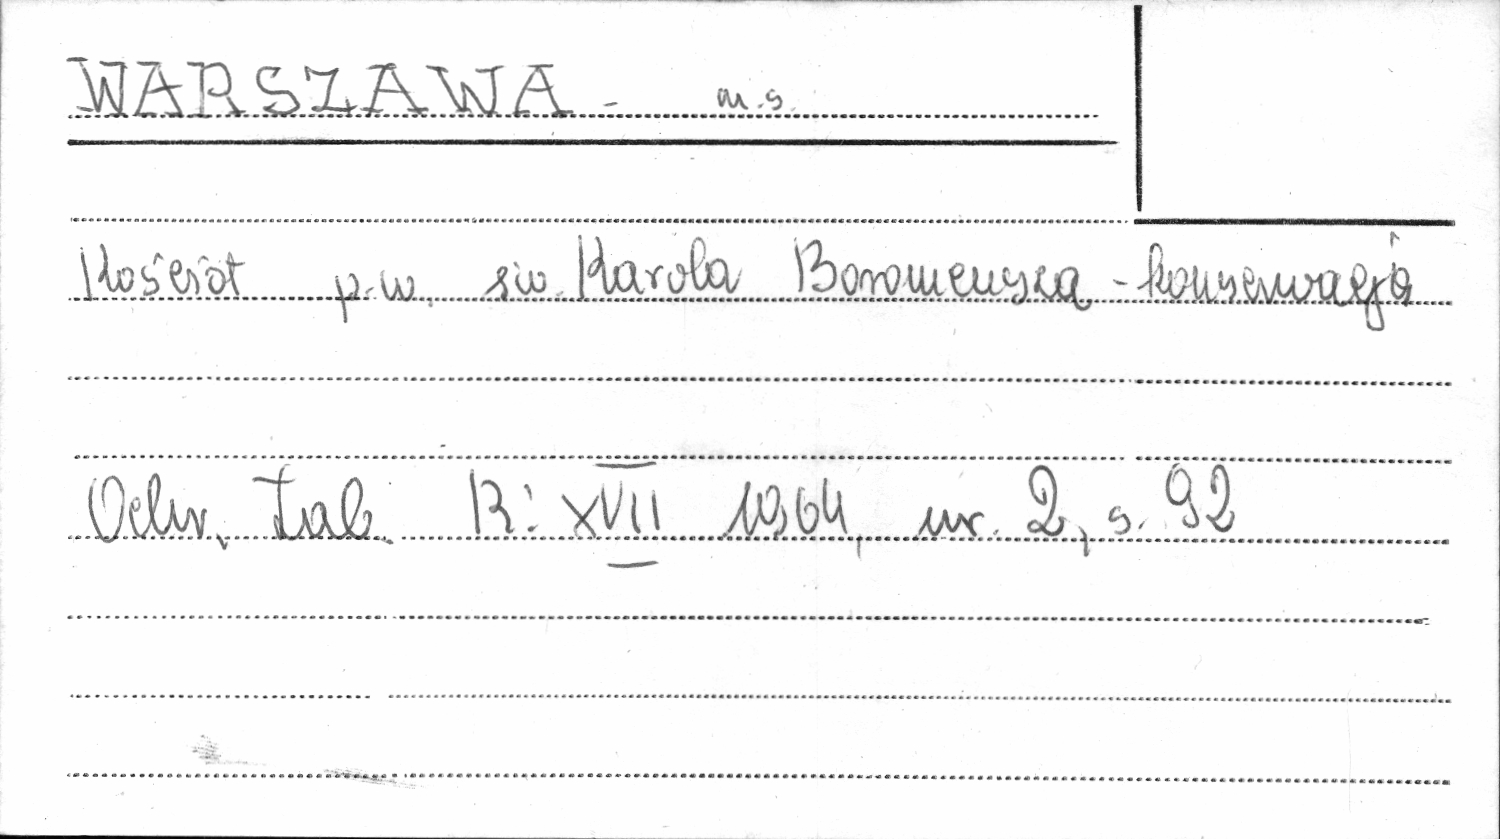 WARSZAWA - m.s.
Kościół p.w. św. Karola Boromeusza - konserwacja
Ochr. Zab. R: XVII 1964, nr. 2, s. 92